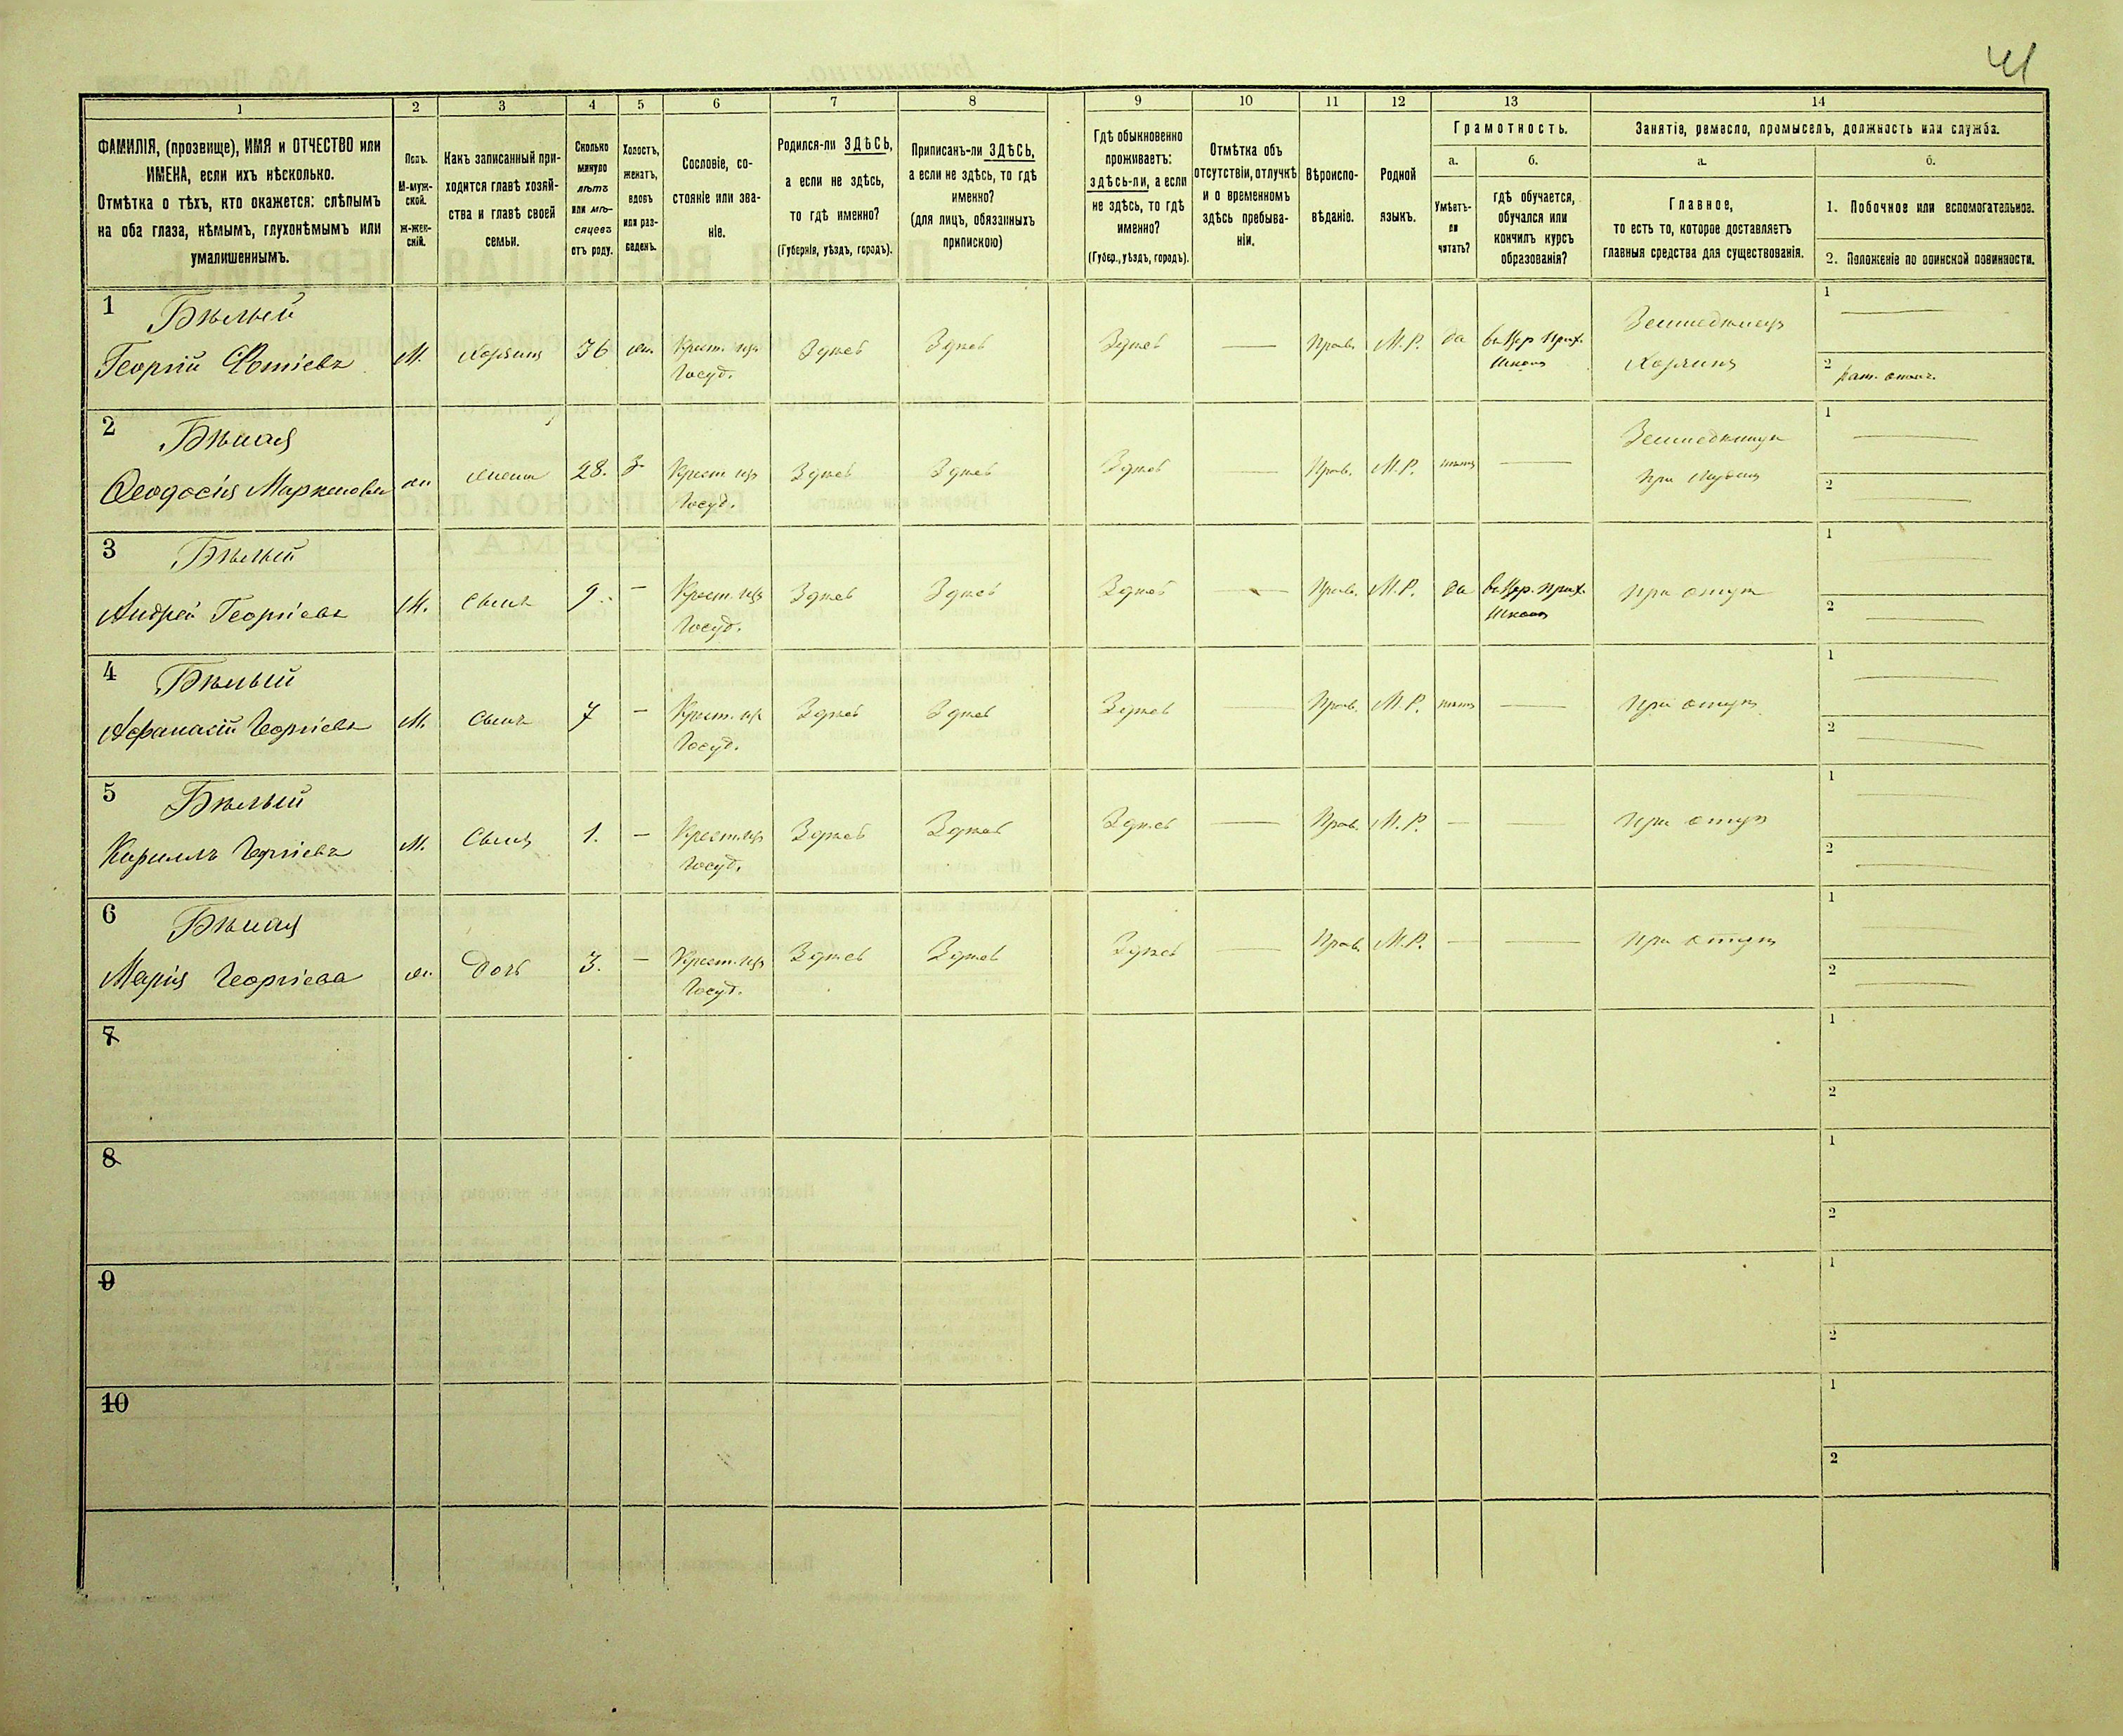 41
1
2
3
4
5
6
7
8
9
10
11
12
13
14
ФАМИЛІЯ, (прозвище), ИМЯ и ОТЧЕСТВО или
ИМЕНА, если ихъ нѣсколько.
Отмѣтка о тѣхъ, кто окажется: слѣпымъ
на оба глаза, нѣмымъ, глухонѣмымъ или
умалишеннымъ.
Полъ.
М-муж-
ской.
Ж-жен-
скій.
Какъ записанный при-
ходится главѣ хозяй-
ства и главѣ своей
семьи.
Сколько
минуло
лѣтъ
или мѣ-
сяцевъ
отъ роду.
Холостъ,
женатъ,
вдовъ
или раз-
веденъ.
Сословіе, со-
стояніе или зва-
ніе.
Родился-ли ЗДѢСЬ,
а если не здѣсь,
то гдѣ именно?
(Губернія, уѣздъ, городъ).
Приписанъ-ли ЗДѢСЬ,
а если не здѣсь, то гдѣ
именно?
(для лицъ, обязанныхъ
припискою)
Гдѣ обыкновенно
проживаетъ:
здѣсь-ли, а если
не здѣсь, то гдѣ
именно?
(Губер., уѣздъ, городъ).
Отмѣтка объ
отсутствіи, отлучкѣ
и о временномъ
здѣсь пребыва-
ніи.
Вѣроиспо-
вѣданіе.
Родной
языкъ.
Грамотность.
а.
Умѣетъ-
ли
читать?
б.
гдѣ обучается,
обучался или
кончилъ курсъ
образованія?
Занятіе, ремесло, промыселъ, должность или служба.
а.
Главное,
то есть то, которое доставляетъ
главныя средства для существованія.
б.
1. Побочное или вспомогательное.
2. Положеніе по воинской повинности.
1 Бѣлый
Георгій Фотіевъ М. Хозяинъ 36 жн. Крест. изъ Госуд. Здѣсь Здѣсь Здѣсь — Прав. М.Р. да въ Цер. Прих. Школѣ Земледѣлецъ Хозяинъ
1 —
2 Рат. ополч.
2 Бѣлая
Феодосія Маркелова ж. жена 28. З. Крест. изъ Госуд. Здѣсь Здѣсь Здѣсь — Прав. М.Р. нѣтъ — Земледѣлица при мужѣ
1 —
2 —
3 Бѣлый
Андрей Георгіевъ М. Сынъ 9. — Крест. изъ Госуд. Здѣсь Здѣсь Здѣсь — Прав. М.Р. да въ Цер. Прих. Школѣ при отцѣ
1 —
2 —
4 Бѣлый
Афанасій Георгіевъ М. Сынъ 7 — Крест. изъ Госуд. Здѣсь Здѣсь Здѣсь — Прав. М.Р. нѣтъ — при отцѣ
1 —
2 —
5 Бѣлый
Кириллъ Георгіевъ М. Сынъ 1. — Крест. изъ Госуд. Здѣсь Здѣсь Здѣсь — Прав. М.Р. — — при отцѣ
1 —
2 —
6 Бѣлая
Марія Георгіева ж. Дочь 3. — Крест. изъ Госуд. Здѣсь Здѣсь Здѣсь — Прав. М.Р. — — при отцѣ
1 —
2 —
7
1
2
8
1
2
9
1
2
10
1
2